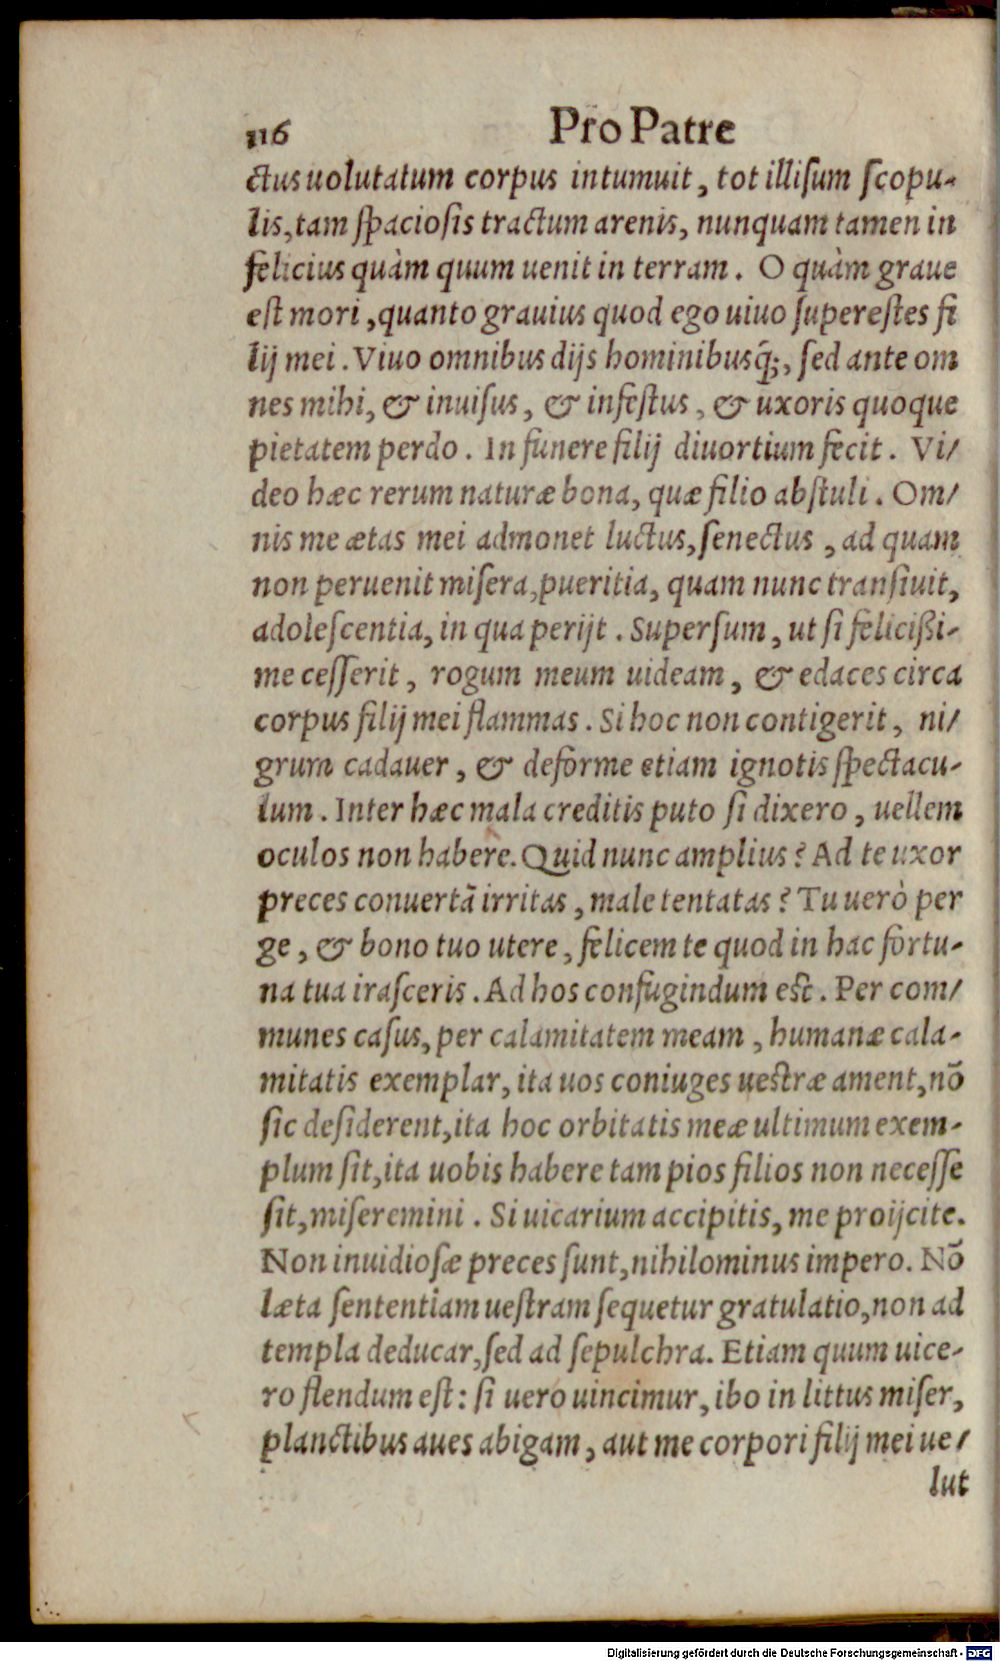 116 Pro Patre
ctus uolutatum corpus intumuit, tot illiſum ſcopu-
lis, tam ſpacioſis tractum arenis, nunquam tamen in
felicius quàm quum uenit in terram. O quàm graue
eſt mori, quanto grauius quod ego uiuo ſupereſtes fi
lij mei. Viuo omnibus dijs hominibusq́;, ſed ante om
nes mihi, & inuiſus, & infeſtus, & uxoris quoque
pietatem perdo. In funere filij diuortium fecit. Vi/
deo hæc rerum naturæ bona, quæ filio abſtuli. Om/
nis me ætas mei admonet luctus, ſenectus, ad quam
non peruenit miſera, pueritia, quam nunc tranſiuit,
adoleſcentia, in qua perijt. Superſum, ut ſi felicißi-
me ceſſerit, rogum meum uideam, & edaces circa
corpus filij mei flammas. Si hoc non contigerit, ni/
grum cadauer, & deforme etiam ignotis ſpectacu-
lum. Inter hæc mala creditis puto ſi dixero, uellem
oculos non habere. Quid nunc amplius? Ad te uxor
preces conuertā irritas, male tentatas? Tu uerò per
ge, & bono tuo utere, felicem te quod in hac fortu-
na tua iraſceris. Ad hos confugindum est. Per com/
munes caſus, per calamitatem meam, humanæ cala-
mitatis exemplar, ita uos coniuges uestræ ament, nō
ſic deſiderent, ita hoc orbitatis meæ ultimum exem-
plum ſit, ita uobis habere tam pios filios non neceſſe
ſit, miſeremini. Si uicarium accipitis, me proijcite.
Non inuidioſæ preces ſunt, nihilominus impero. Nō
læta ſententiam ueſtram ſequetur gratulatio, non ad
templa deducar, ſed ad ſepulchra. Etiam quum uice-
ro flendum eſt: ſi uero uincimur, ibo in littus miſer,
planctibus aues abigam, aut me corpori filij mei ue/
lut
Digitalisierung gefördert durch die Deutsche Forschungsgemeinschaft - DFG